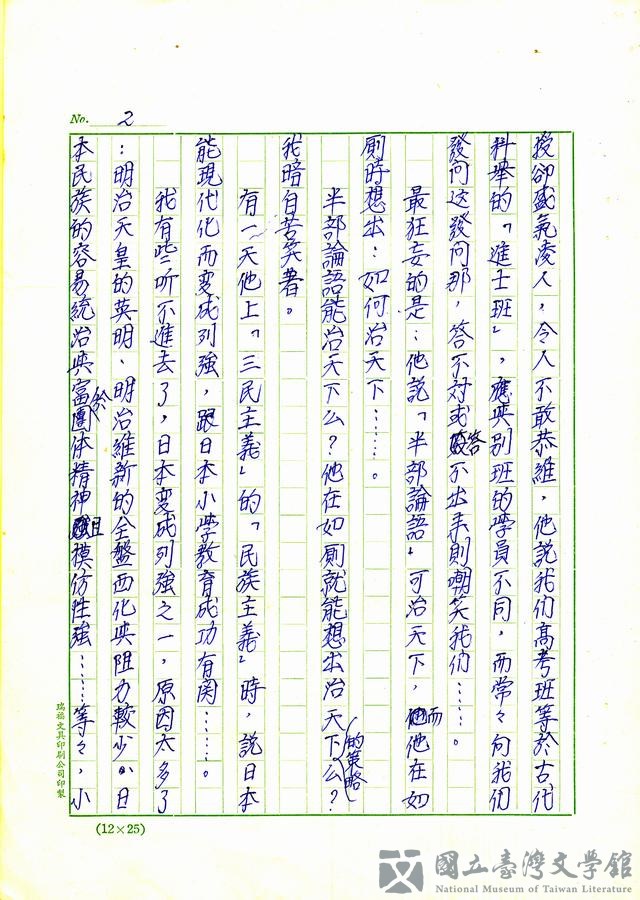 No. 2
授卻盛氣凌人，令人不敢恭維，他說我们高考班等於古代
科舉的「進士班」，應與别班的学員不同，而常々向我们
發问这發问那，答不对或答不出來則嘲笑我们……。
最狂妄的是：他說「半部論語」可治天下，而他在如
厠時想出：如何治天下……。
半部論語能治天下么？他在如厠就能想出治天下的策略么？
我暗自苦笑著。
有一天他上「三民主義」的「民族主義」時，說日本
能現代化而變成列強，跟日本小学教育成功有関……。
我有些听不進去了，日本變成列強之一，原因太多了
：明治天皇的英明、明治維新的全盤西化與阻力較少、日
本民族的容易統治與富於團体精神且模仿性強……等々，小
瑞福文具印刷公司印製
(12×25)
國立臺灣文學館
National Museum of Taiwan Literature